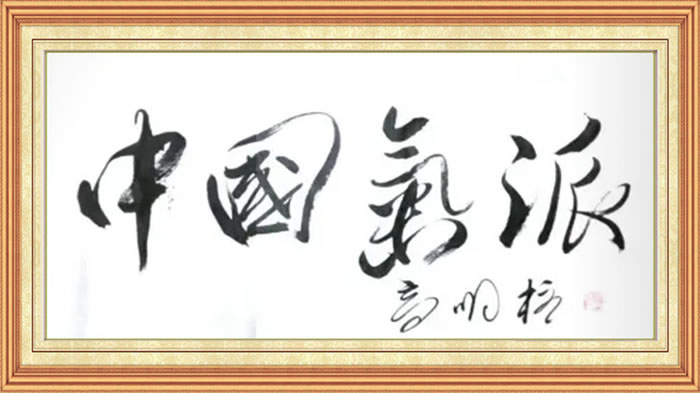 中國氣派
高明